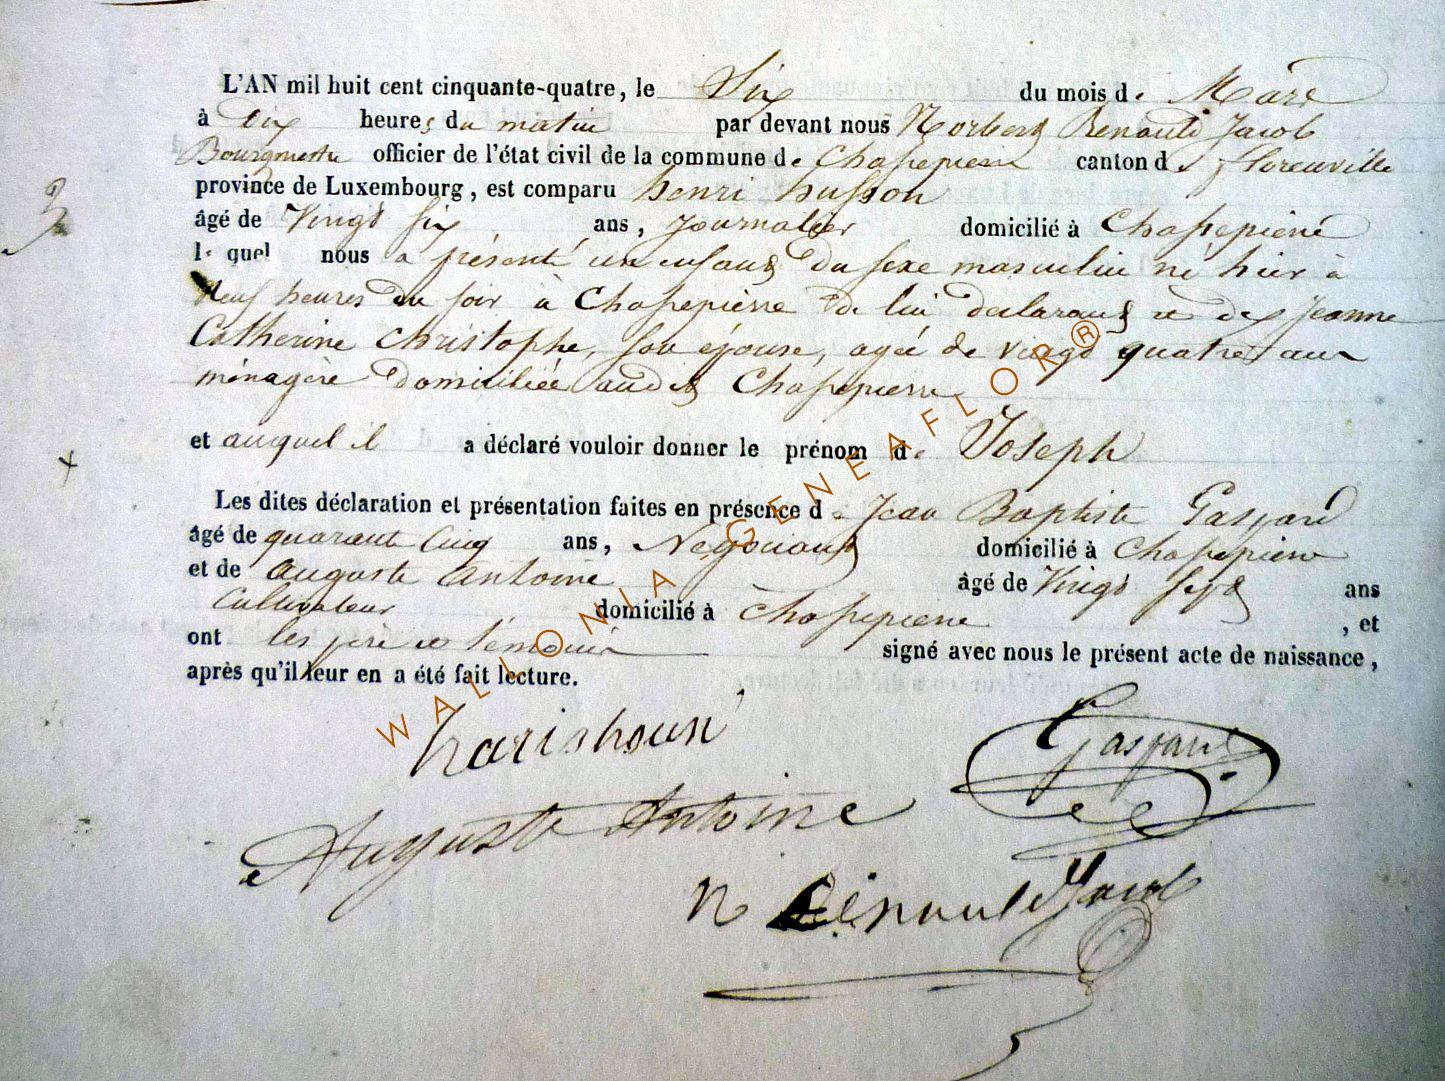 L'AN mil huit cent cinquante-quatre, le Six du mois de Mars
à dix heures du matin par devant nous Norbert Renauld Jacob
Bourgmestre officier de l'état civil de la commune de Chassepierre canton de florenville
province de Luxembourg, est comparu henri husson
âgé de Vingt six ans, Journalier domicilié à Chassepierre
lequel nous a présenté un enfant du sexe masculin né hier à
neuf heures du soir à Chassepierre de lui declarant et de Jeanne
Catherine Christophe, son épouse, agée de vingt quatre ans
ménagère domiciliée audit Chassepierre
et auquel il a déclaré vouloir donner le prénom de Joseph
Les dites déclaration et présentation faites en présence de Jean Baptiste Gaspard
âgé de quarante cinq ans, Négociant domicilié à Chassepierre
et de auguste antoine âgé de Vingt sept ans
Cultivateur domicilié à Chassepierre, et
ont les père et témoins signé avec nous le présent acte de naissance,
après qu'il leur en a été fait lecture.
Gaspard
Auguste Antoine
N Renauld Jacob
WALLONIA-GENEAFLOR®